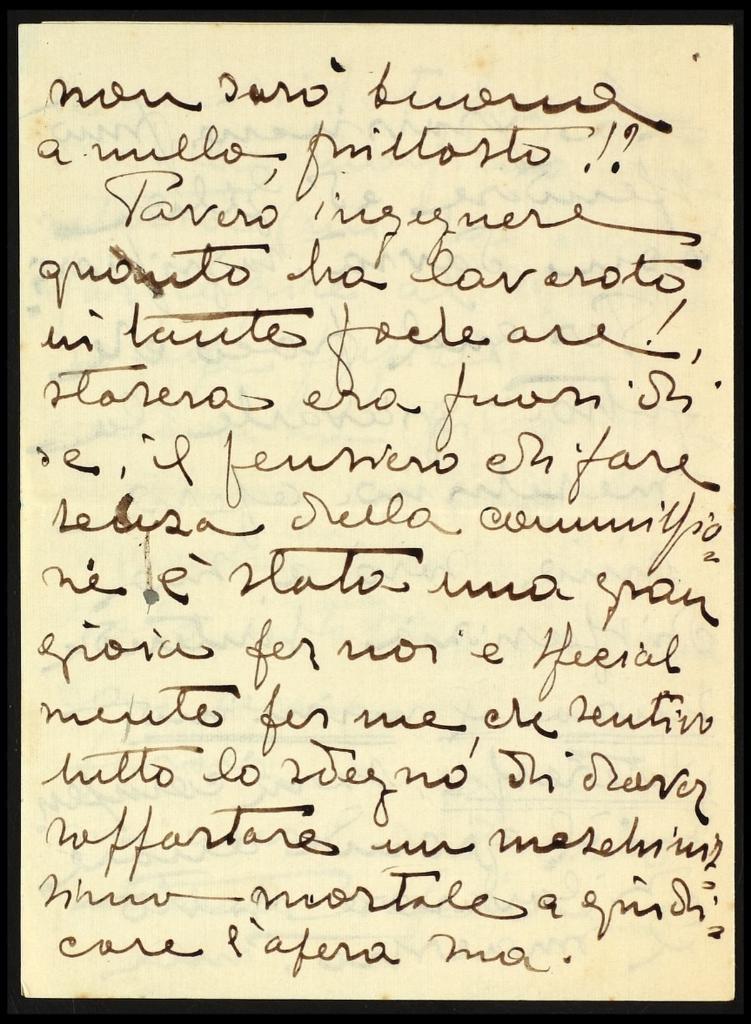 non sarò buona
a nulla, piuttosto!!?
Povero ingegnere
quanto ha lavorato
in tante poche ore!,
stasera era fuori di
se, il pensiero di fare
senza della commissio=
ne è stata una gran
gioia per noi e special
mente per me, che sentivo
tutto lo sdegno di dover
soffortare un meschinis=
simo mortale a giudi=
care l'opera sua.